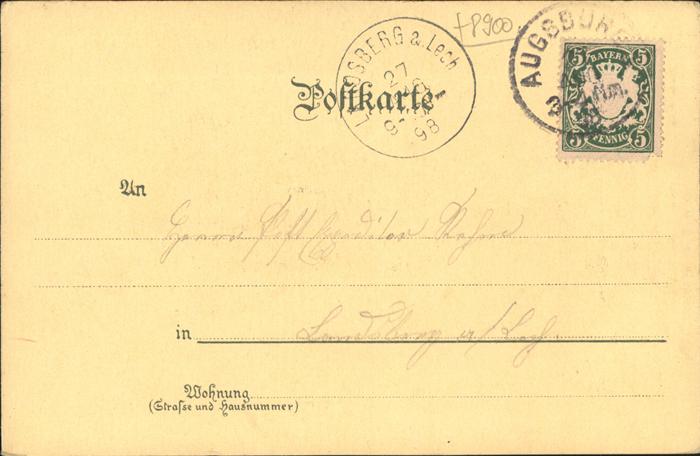 +P900
LANDSBERG a. Lech
27
98
AUGSBURG
Nm.
5 BAYERN 5
5 PFENNIG 5
Postkarte
An
Herrn
in Landsberg a/Lech.
Wohnung
(Strasse und Hausnummer)